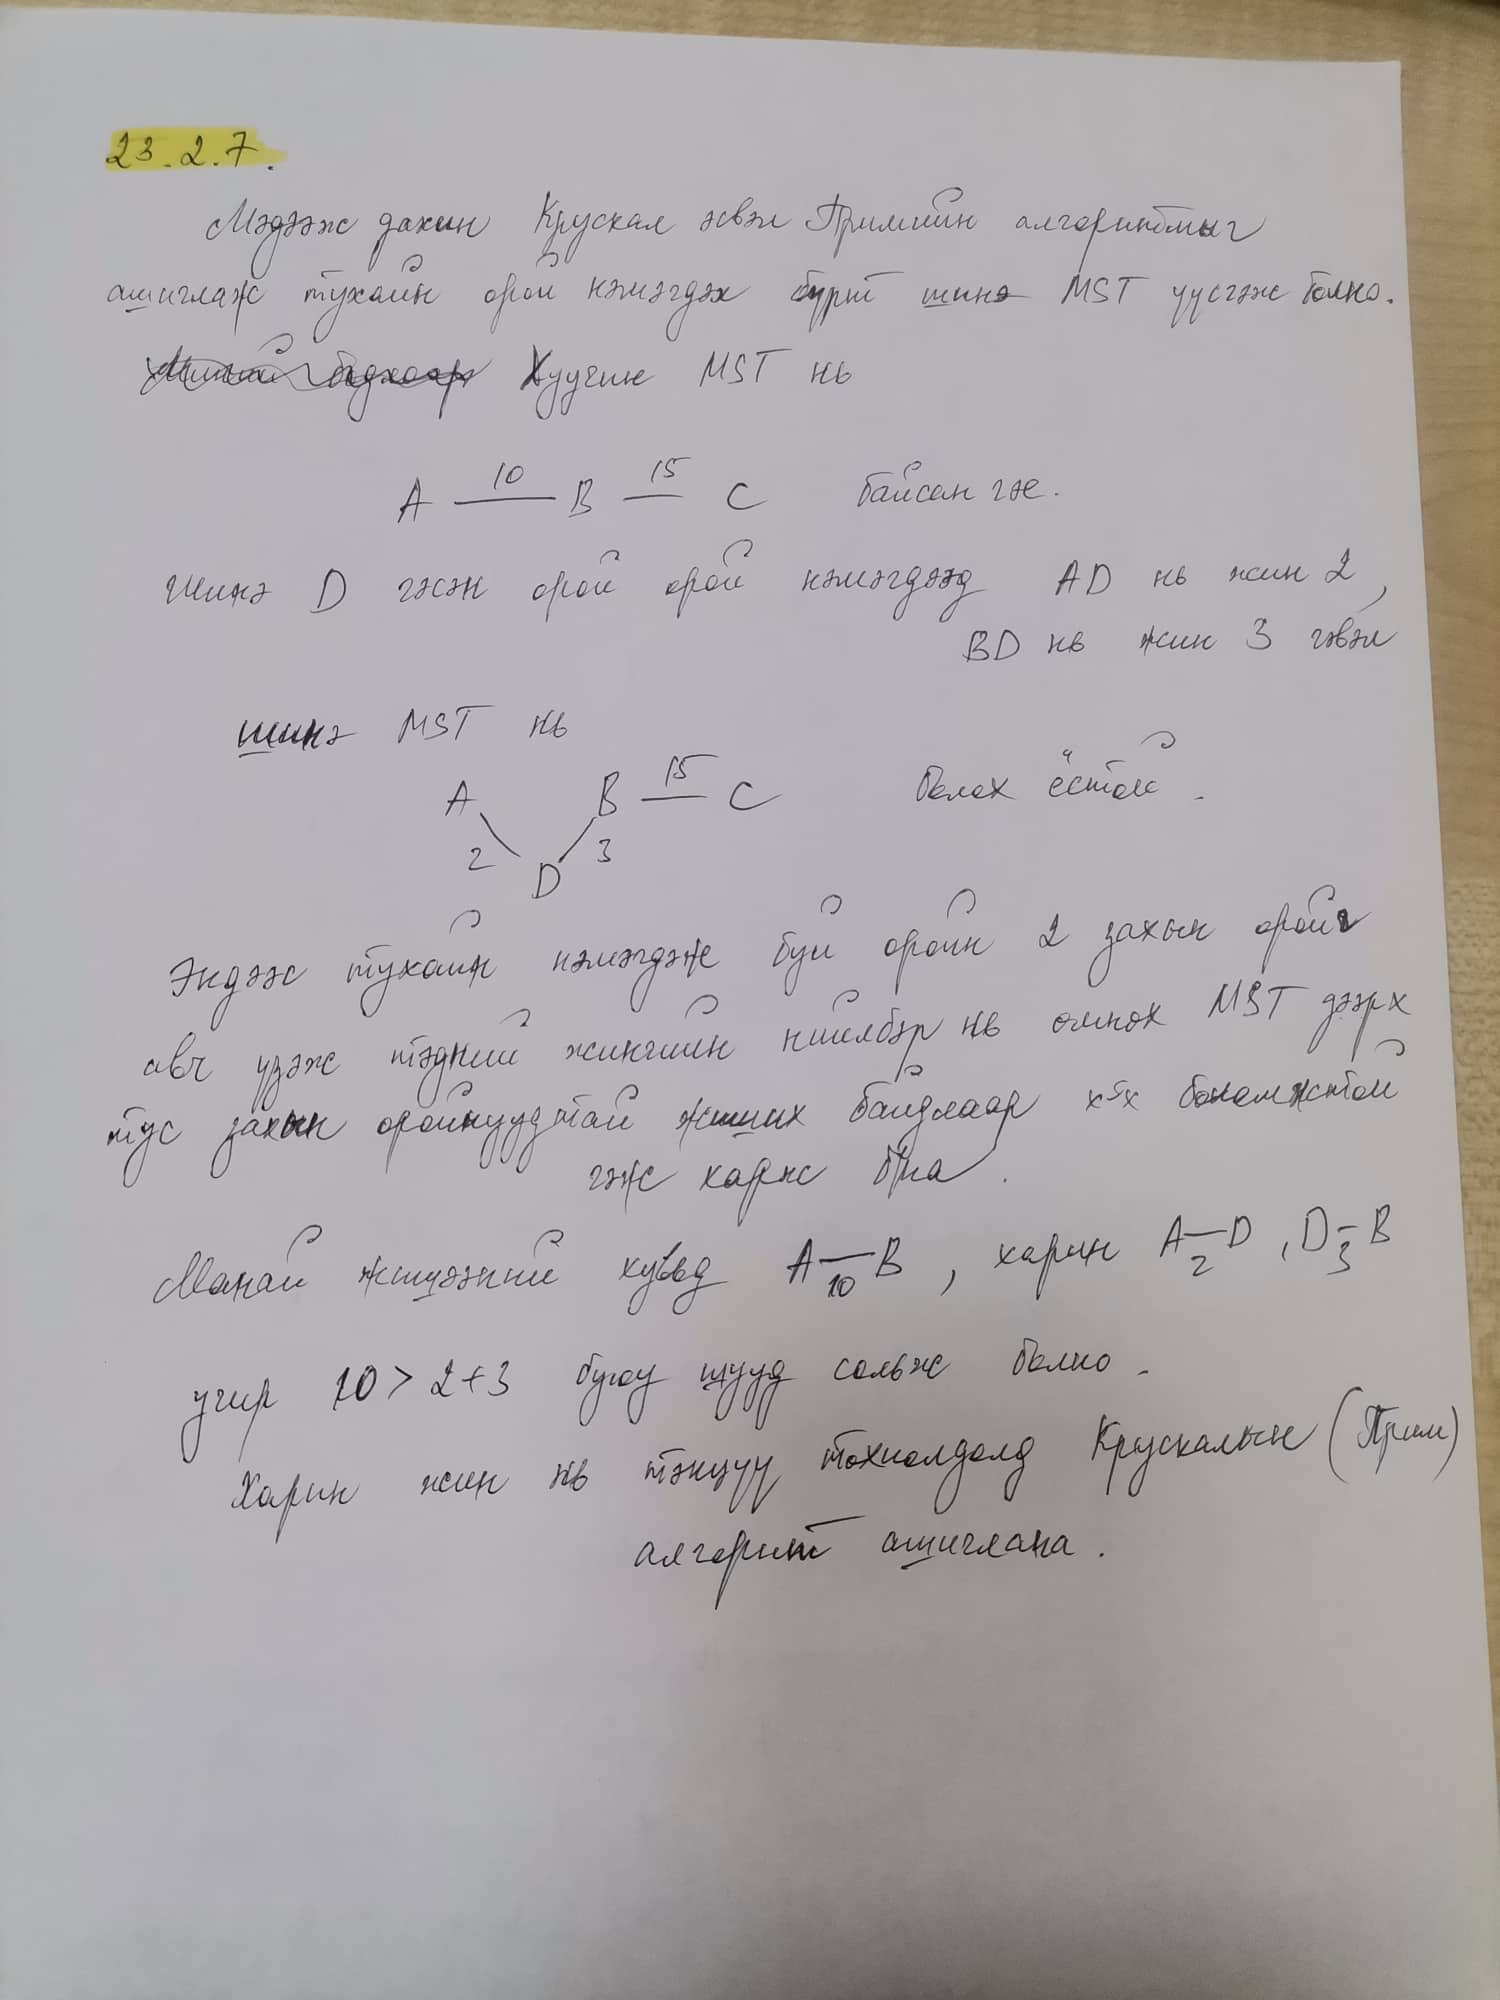 23.2.7.
Мэдээж дахин Крускал эсвэл Примийн алгоритмыг
ашиглаж тухайн орой нэмэгдэх бүрт шинэ MST үүсгэж болно.
Хуучин MST нь
A 10 B 15 C байсан гэе.
Шинэ D гэсэн орой орой нэмэгдээд AD нь жин 2,
BD нь жин 3 гэвэл
шинэ MST нь
A B 15 C болох ёстой.
2 D 3
Эндээс тухайн нэмэгдэж буй оройн 2 захын оройг
авч үзэж тэдний жингийн нийлбэр нь өмнөх MST дээрх
тус захын оройнуудтай жиших байдлаар х5х боломжтой
гэж харж бна.
Манай жишээний хувьд A 10 B, харин A 2 D, D 3 B
учир 10 > 2+3 буюу шууд сольж болно.
Харин жин нь тэнцүү тохиолдолд Крускалын (Прим)
алгоритм ашиглана.